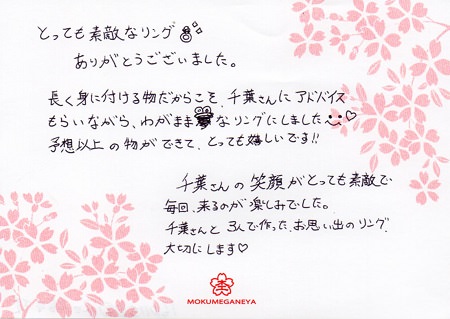 とっても素敵なリング
ありがとうございました。
長く身に付ける物だからこそ、千葉さんにアドバイス
もらいながら、わがままなリングにしました♡
予想以上の物ができて、とっても嬉しいです!!
千葉さんの笑顔がとっても素敵で
毎回、来るのが楽しみでした。
千葉さんと3人で作った、お思い出のリング
大切にします♡
MOKUMEGANEYA